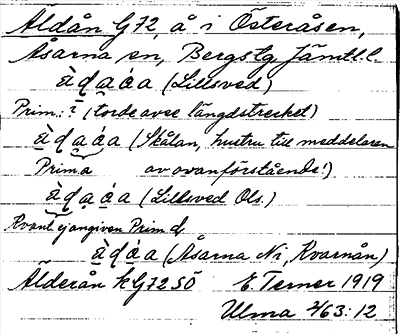 Aldån G72, å i Österåsen,
Åsarna sn, Bergs tg Jämtl. l.
(Lillsved)
Prim.: (torde avse längdstrecket)
(Skålan, hustru till meddelaren
Prim a av ovanförstående!)
(Lillsved Ols.)
Kvant. ej angiven Prim d
(Åsarna Ni, Kvarnån)
Ålderån kG72SÖ E. Terner 1919
Ulma 2/63:12